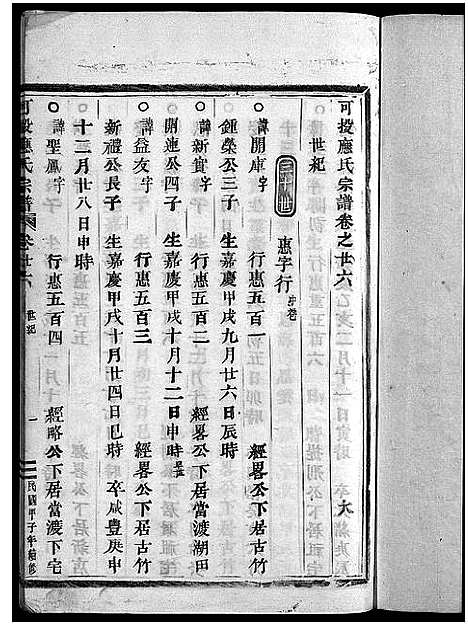 可投應氏宗譜卷之廿六
世紀
三十世
惠字行
諱開庫字 行惠五百一 經畧公下居古竹
鍾榮公三子 生嘉慶甲戌九月廿六日辰時
諱新實字 行惠五百二 經畧公下居當渡湖田
開連公四子 生嘉慶甲戌十月十二日申時
諱益友字 行惠五百三 經畧公下居古竹
新禮公長子 生嘉慶甲戌十月廿四日巳時 卒咸豐庚申
十二月廿八日申時
諱聖鳳字 行惠五百四 經略公下居當渡下宅
可投應氏宗譜 卷廿六 世紀 一 民國甲子年續修